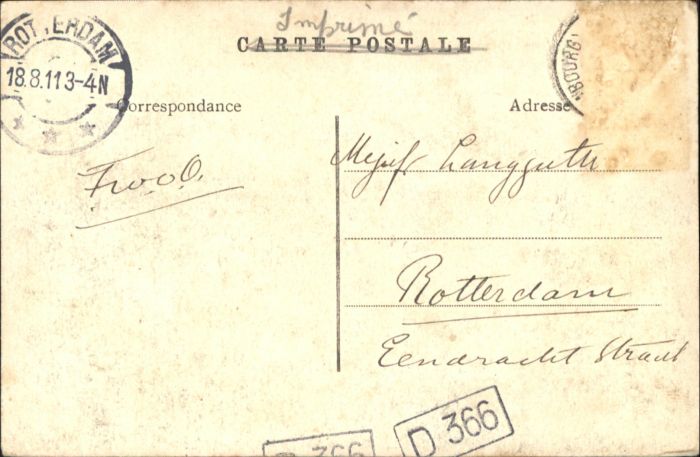 Imprimé
CARTE POSTALE
ROTTERDAM
18.8.11 3-4N
BOURG
Correspondance
Adresse
Mejuf Langguth
Rotterdam
Eendracht Straat
D 366
D 366